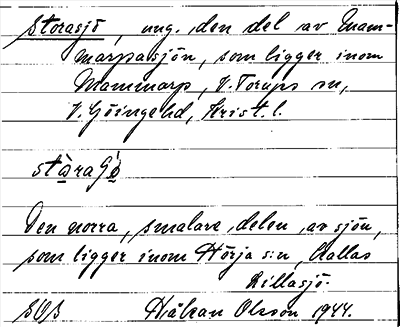 Storasjö, ung. den del av Mam-
marpasjön, som ligger inom
Mammarp, V. Torups sn,
V. Göingehd, Krist. l.
Den norra, smalare delen av sjön,
som ligger inom Hörja s:n, kallas
Lillasjö.
Håkan Olsson 1944.